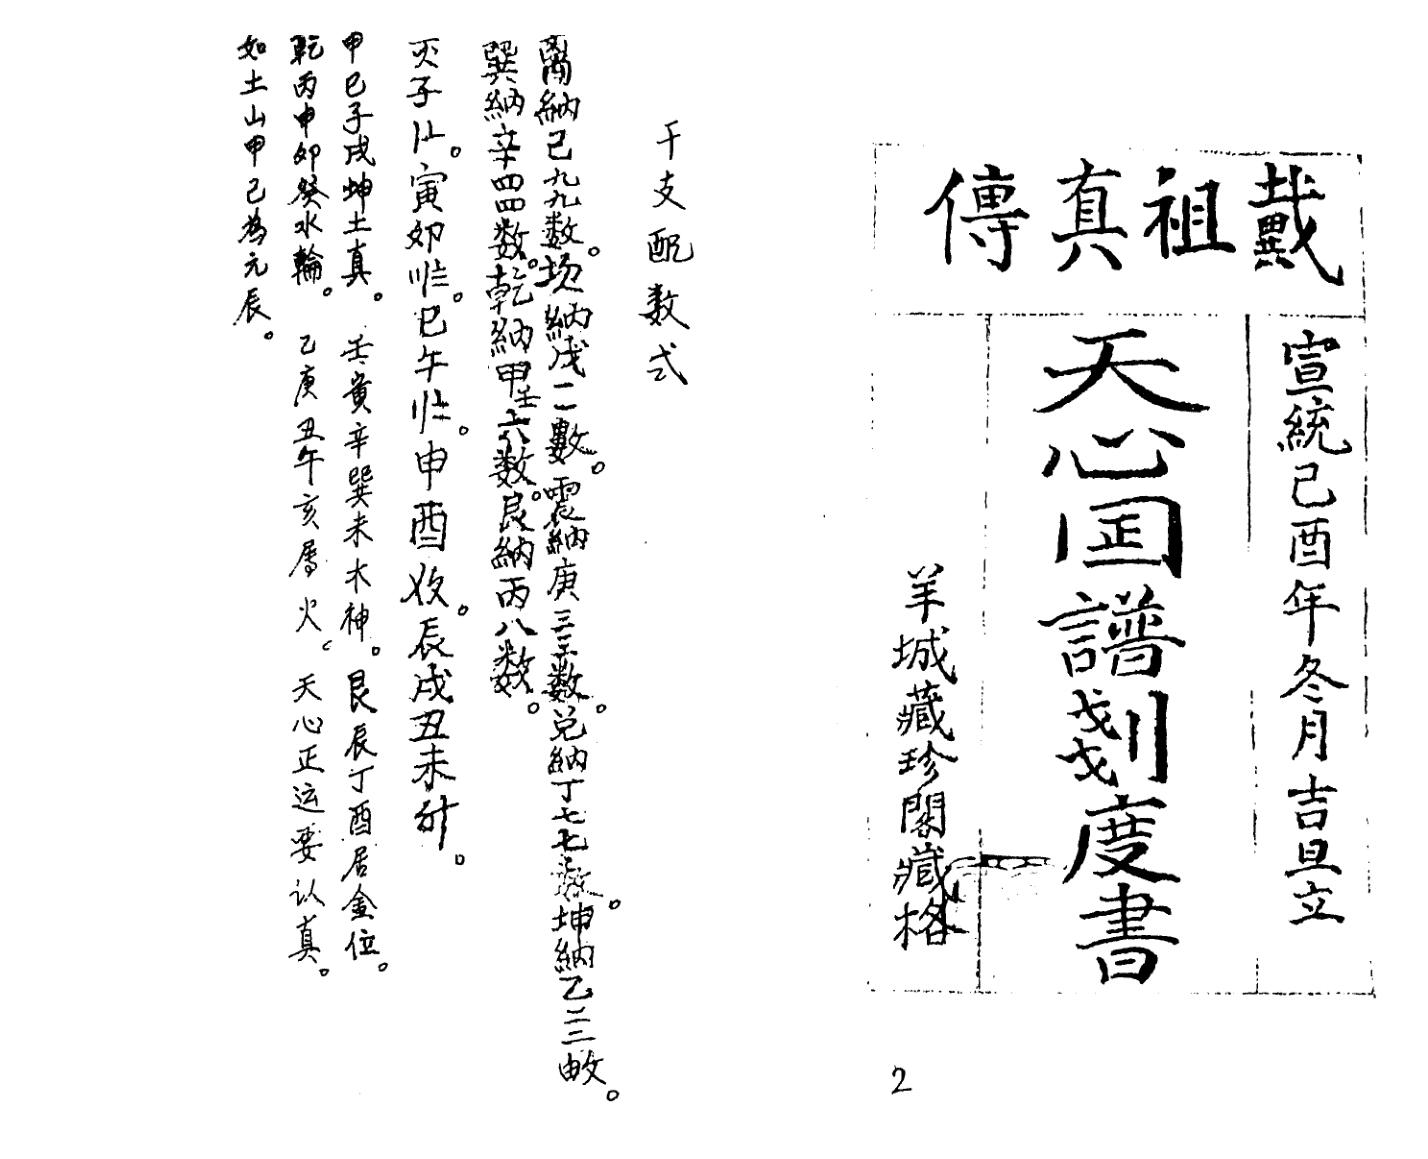 戴祖真傳
宣統己酉年冬月吉旦立
天心囸譜劃度書
羊城藏珍閣藏格
2
干支配数式
离納己九九数。坎納戊一數。震納庚三三数。兑納丁七七数。坤納乙二二数。
巽納辛四四数。乾納甲壬六数。艮納丙八数。
亥子。寅卯。巳午。申酉。辰戌丑未
甲巳子戌坤土真。壬寅辛巽未木神。艮辰丁酉居金位。
乾丙申卯癸水輪。乙庚丑午亥属火。天心正运要认真。
如土山甲己為元辰。